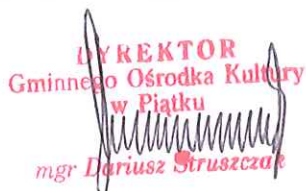 DYREKTOR
Gminnego Ośrodka Kultury
w Piątku
mgr Dariusz Struszczak